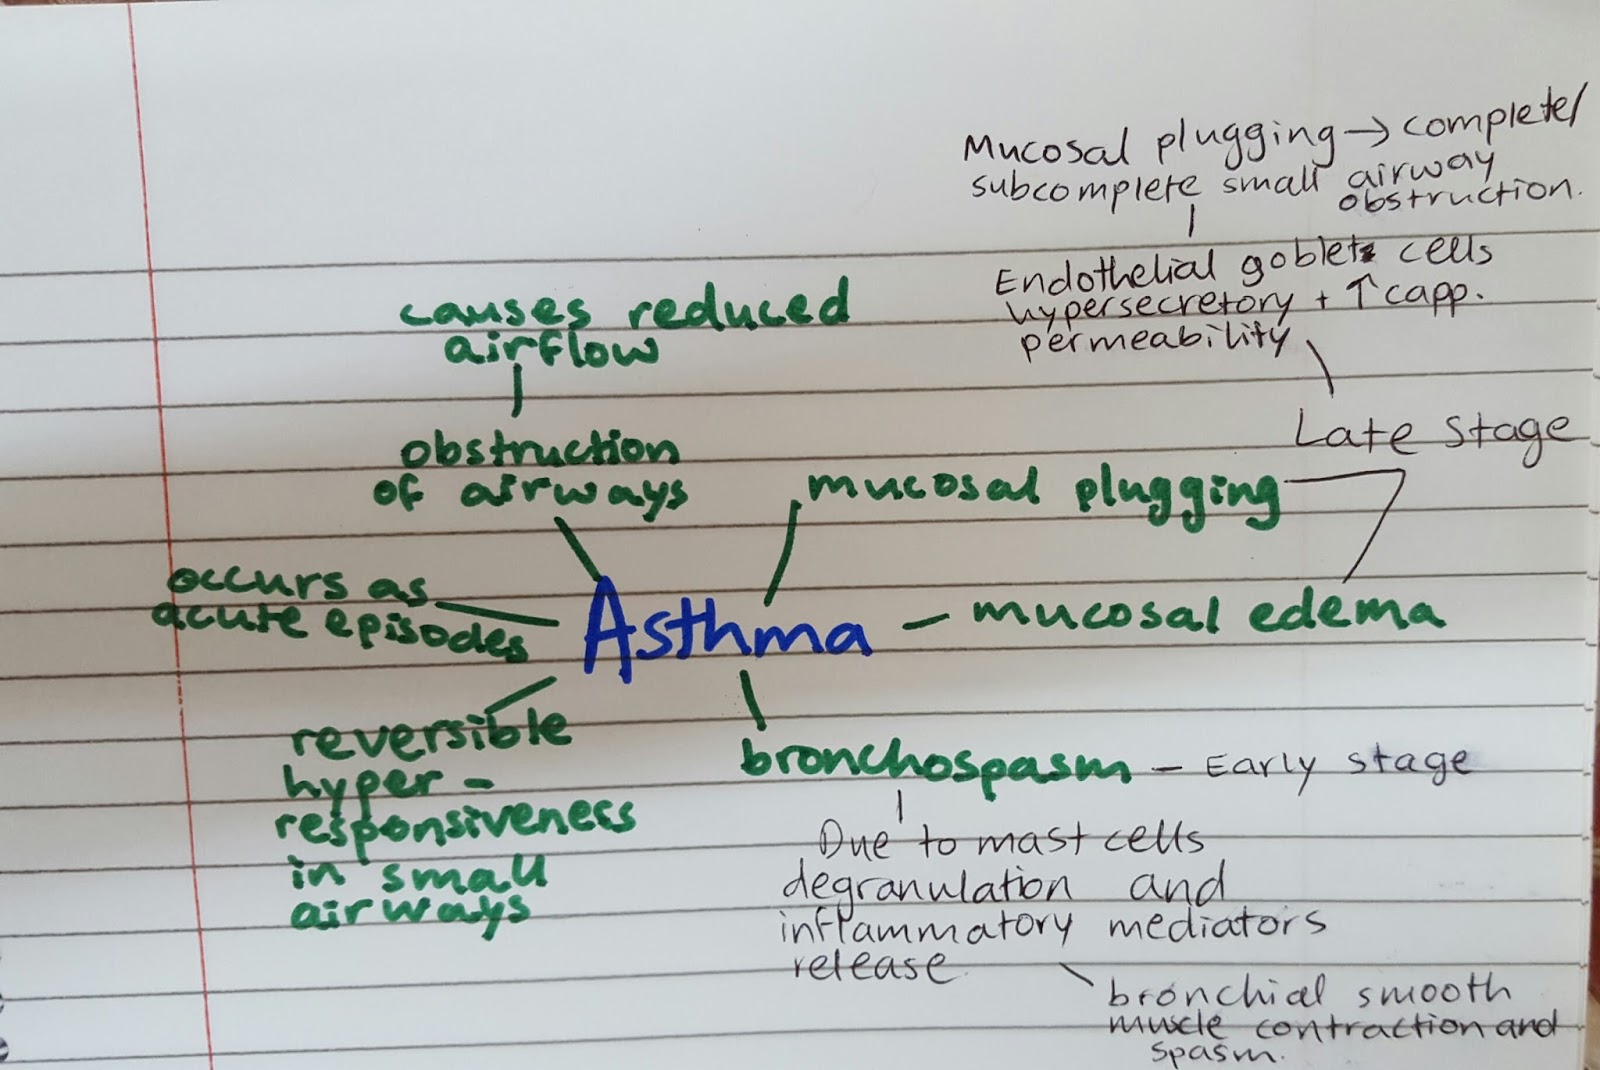 Mucosal plugging → complete/
subcomplete small airway
obstruction.
Endothelial goblet cells
hypersecretory + ↑ capp.
permeability
Late stage
causes reduced
airflow
obstruction
of airways
mucosal plugging
occurs as
acute episodes
Asthma
mucosal edema
reversible
hyper-
responsiveness
in small
airways
bronchospasm - Early stage
Due to mast cells
degranulation and
inflammatory mediators
release
bronchial smooth
muscle contraction and
spasm.